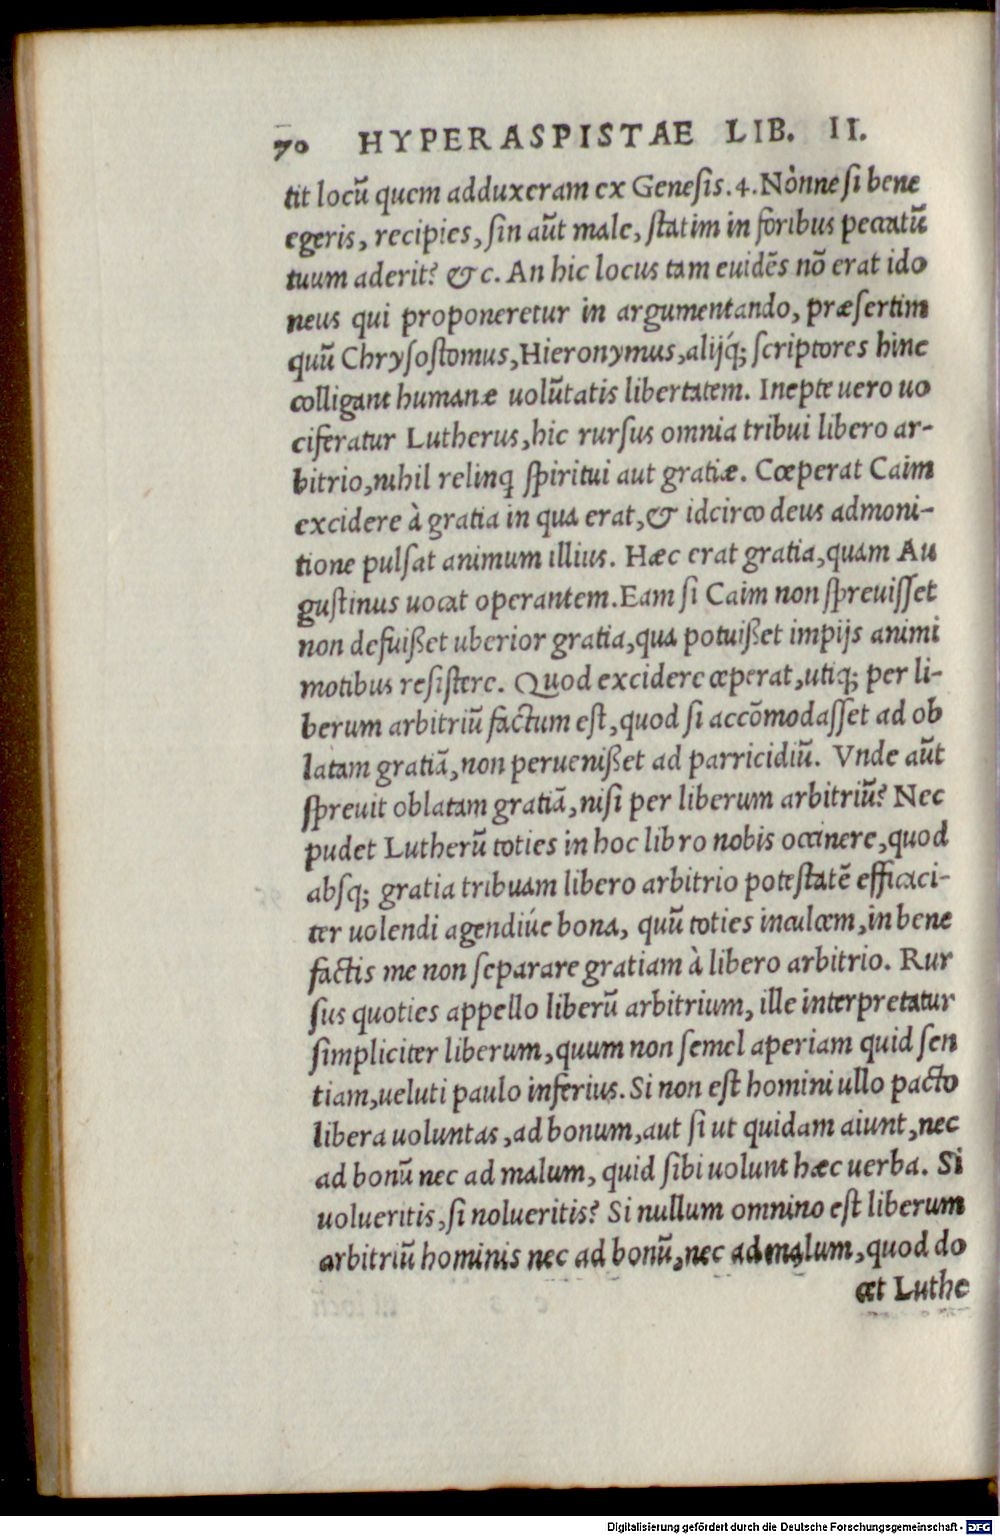 70 HYPERASPISTAE LIB. II.
tit locū quem adduxeram ex Genesis. 4. Nònne si bene
egeris, recipies, sin aūt male, statim in foribus peccatū
tuum aderit? & c. An hic locus tam euidēs nō erat ido
neus qui proponeretur in argumentando, præsertim
quū Chrysostomus, Hieronymus, alijq́; scriptores hinc
colligant humanæ uolūtatis libertatem. Inepte uero uo
ciferatur Lutherus, hic rursus omnia tribui libero ar-
bitrio, nihil relinq spiritui aut gratiæ. Cœperat Caim
excidere à gratia in qua erat, & idcirco deus admoni-
tione pulsat animum illius. Hæc erat gratia, quam Au
gustinus uocat operantem. Eam si Caim non spreuisset
non defuißet uberior gratia, qua potuißet impijs animi
motibus resistere. Quod excidere cœperat, utiq; per li-
berum arbitriū factum est, quod si accōmodasset ad ob
latam gratiā, non peruenißet ad parricidiū. Vnde aūt
spreuit oblatam gratiā, nisi per liberum arbitriū? Nec
pudet Lutherū toties in hoc libro nobis occinere, quod
absq; gratia tribuam libero arbitrio potestatē efficaci-
ter uolendi agendiúe bona, quū toties inculcem, in bene
factis me non separare gratiam à libero arbitrio. Rur
sus quoties appello liberū arbitrium, ille interpretatur
simpliciter liberum, quum non semel aperiam quid sen
tiam, ueluti paulo inferius. Si non est homini ullo pacto
libera uoluntas, ad bonum, aut si ut quidam aiunt, nec
ad bonū nec ad malum, quid sibi uolunt hæc uerba. Si
uolueritis, si nolueritis? Si nullum omnino est liberum
arbitriū hominis nec ad bonū, nec ad malum, quod do
cet Luthe
Digitalisierung gefördert durch die Deutsche Forschungsgemeinschaft - DFG